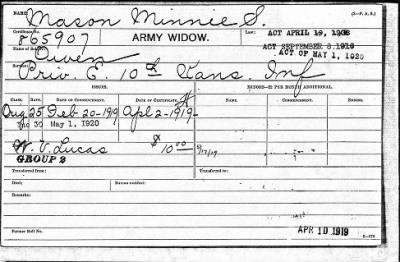 Mason Minnie S. (3-F, A. B.)
Certificate No. Law: ACT APRIL 19, 1908
865907 ARMY WIDOW. ACT SEPTEMBER 8, 1916
ACT OF MAY 1, 1920
Owen
Service:
Priv. E. 10th Kans. Inf
ISSUE.
CLASS. RATE. DATE OF COMMENCEMENT. DATE OF CERTIFICATE. RATE. COMMENCEMENT. ENDING.
Aug 25 Feb 20-1919 Apl 2-1919-
30 May 1, 1920
W. V. Lucas $10.00 5/17/19
GROUP 2
Transferred from: Transferred to:
Died: Bureau notified:
Remarks:
Former Roll No. APR 10 1919